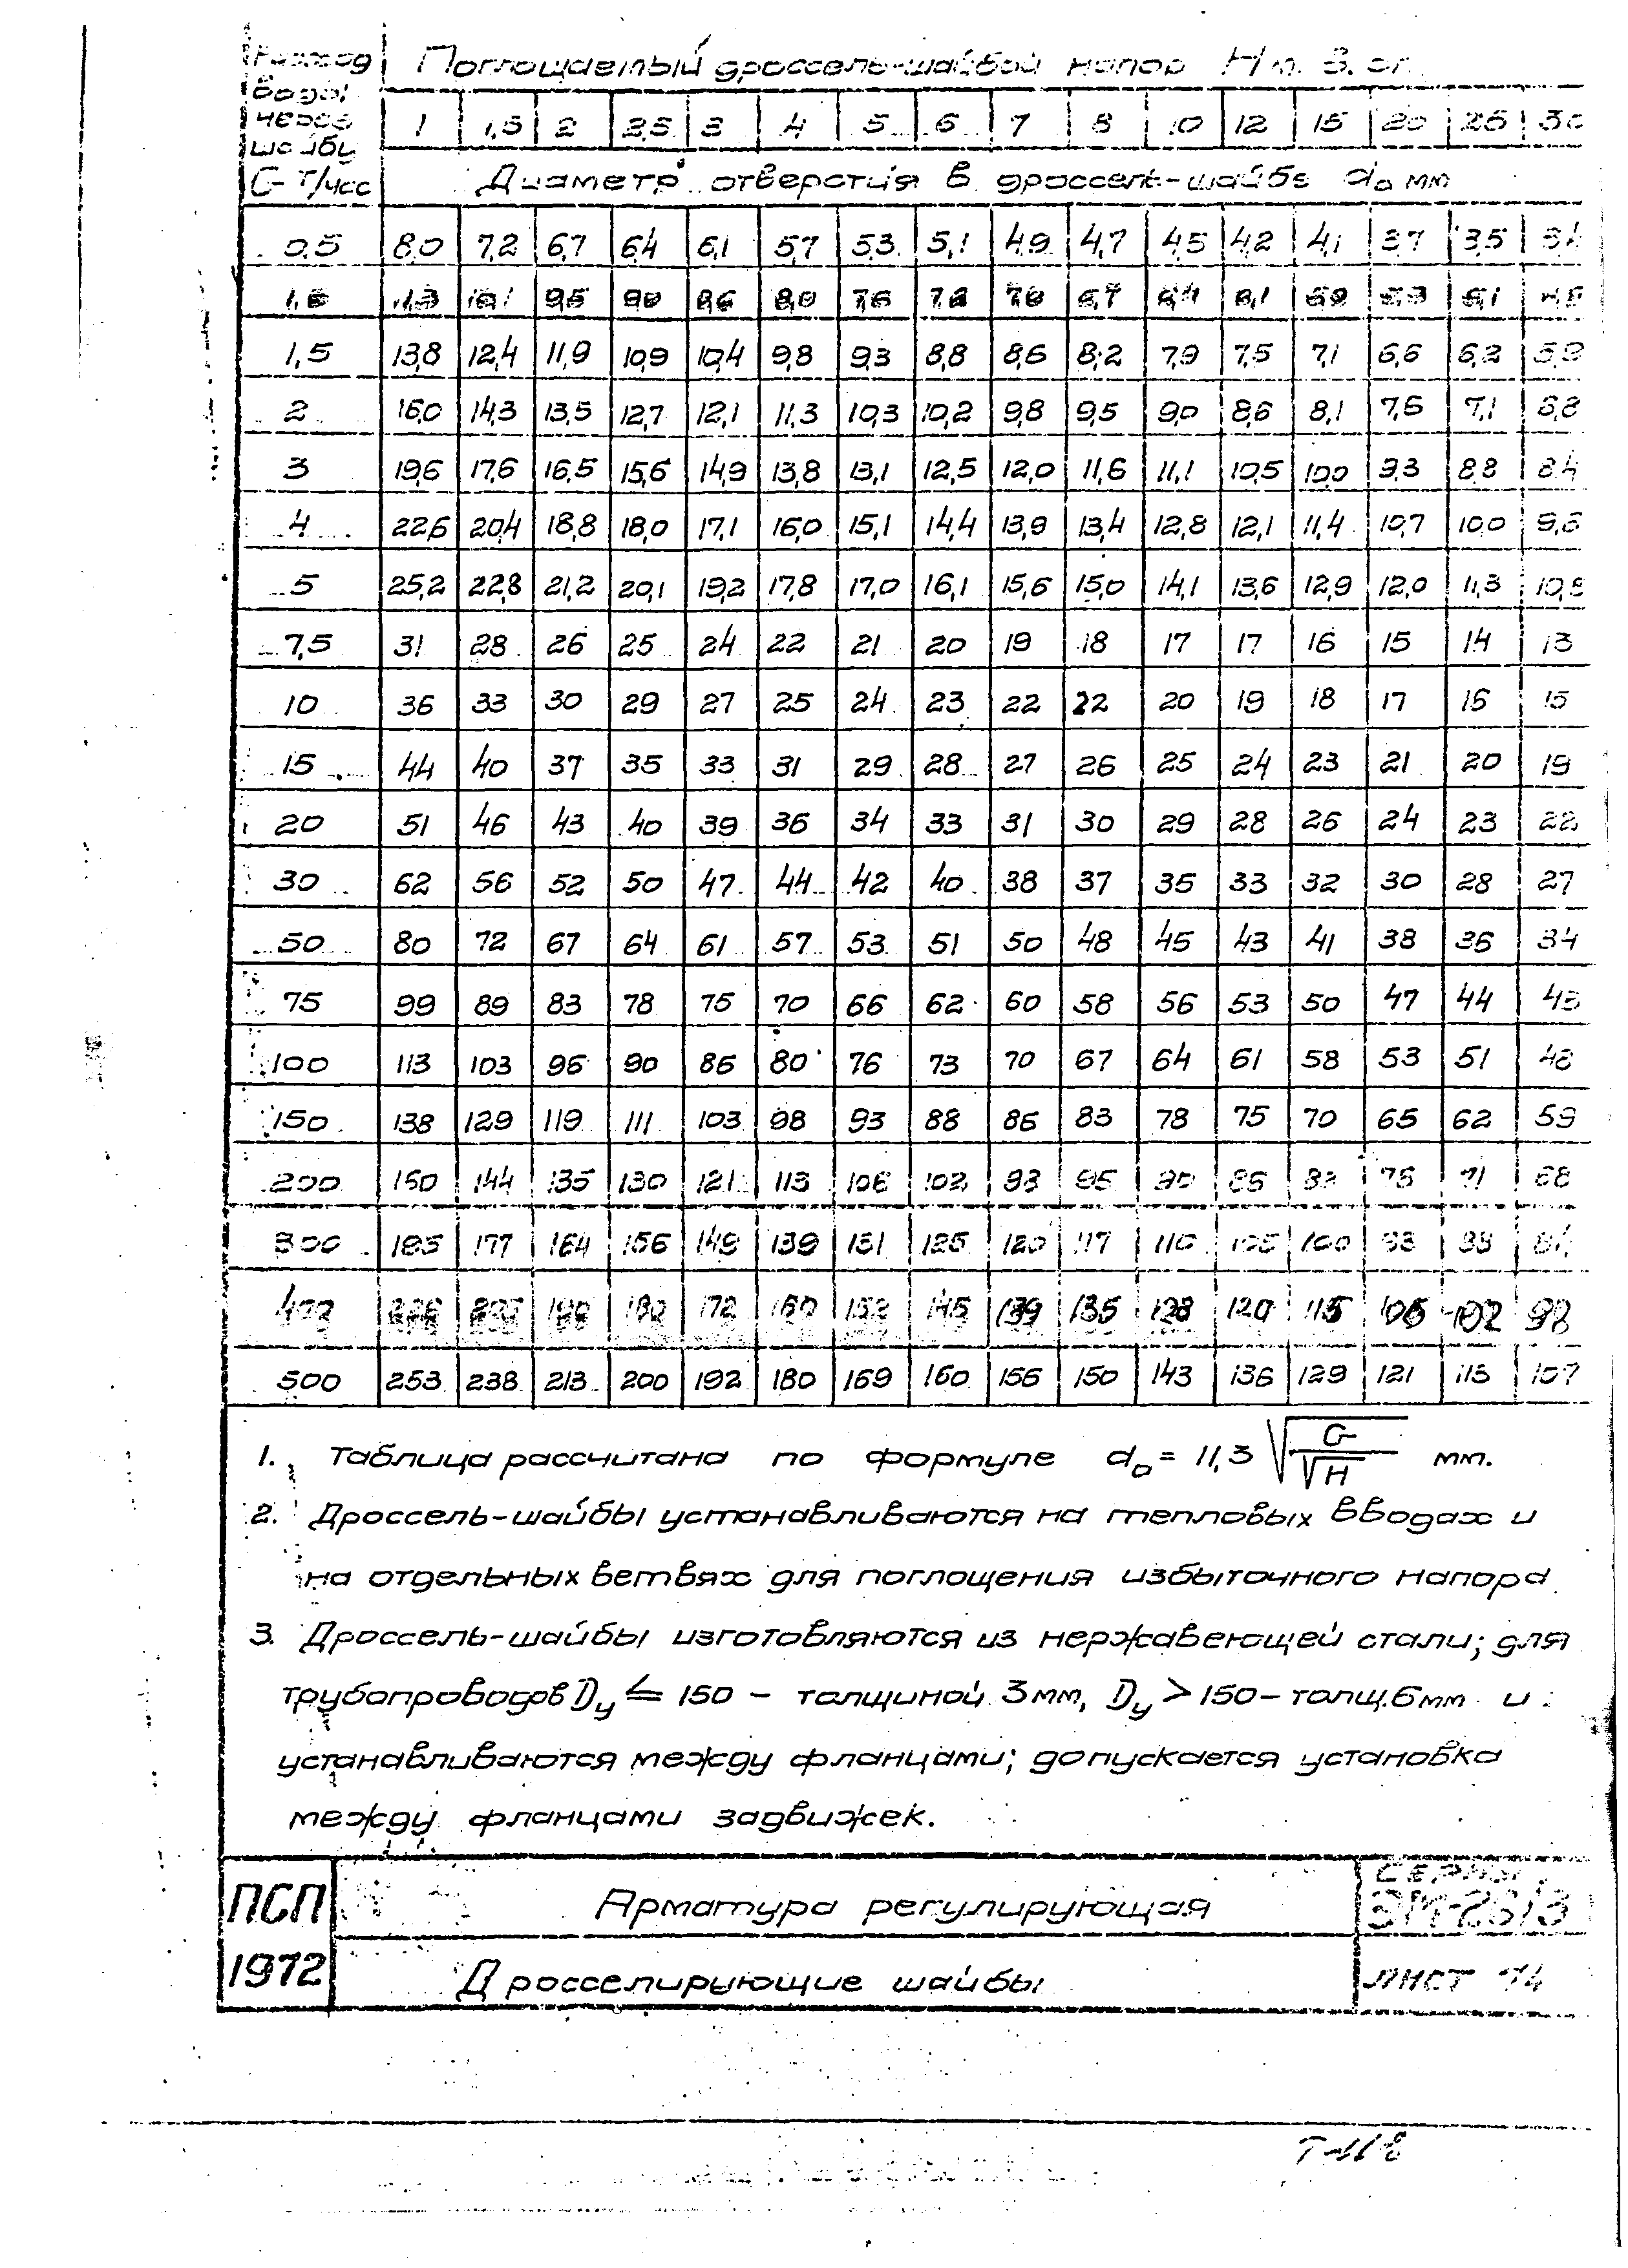 Расход Поглощаемый дроссель-шайбой напор Н м. в. ст.
воды
через 1 1,5 2 2,5 3 4 5 6 7 8 10 12 15 20 25 30
шайбу
G т/час Диаметр отверстия в дроссель-шайбе d₀ мм
0,5 8,0 7,2 6,7 6,4 6,1 5,7 5,3 5,1 4,9 4,7 4,5 4,2 4,1 3,7 3,5 3,4
10,1 9,5 9,0 8,6 8,0 7,6 7,0 6,7 6,4 6,1
1,5 13,8 12,4 11,9 10,9 10,4 9,8 9,3 8,8 8,6 8,2 7,9 7,5 7,1 6,6 6,2
2 16,0 14,3 13,5 12,7 12,1 11,3 10,3 10,2 9,8 9,5 9,0 8,6 8,1 7,6 7,1 6,8
3 19,6 17,6 16,5 15,6 14,9 13,8 13,1 12,5 12,0 11,6 11,1 10,5 10,0 9,3 8,8 8,4
4 22,6 20,4 18,8 18,0 17,1 16,0 15,1 14,4 13,9 13,4 12,8 12,1 11,4 10,7 10,0 9,6
5 25,2 22,8 21,2 20,1 19,2 17,8 17,0 16,1 15,6 15,0 14,1 13,6 12,9 12,0 11,3
7,5 31 28 26 25 24 22 21 20 19 18 17 17 16 15 14 13
10 36 33 30 29 27 25 24 23 22 22 20 19 18 17 16 15
15 44 40 37 35 33 31 29 28 27 26 25 24 23 21 20 19
20 51 46 43 40 39 36 34 33 31 30 29 28 26 24 23 22
30 62 56 52 50 47 44 42 40 38 37 35 33 32 30 28 27
50 80 72 67 64 61 57 53 51 50 48 45 43 41 38 36 34
75 99 89 83 78 75 70 66 62 60 58 56 53 50 47 44
100 113 103 96 90 86 80 76 73 70 67 64 61 58 53 51 48
150 138 129 119 111 103 98 93 88 86 83 78 75 70 65 62 59
200 160 144 135 130 121 113 106 102 98 95 90 86 71 68
300 195 177 164 156 149 139 131 125 120 117 110 105 100 93 88 84
400 180 172 160 152 145 139 135 128 120 115 106 102 98
500 253 238 213 200 192 180 169 160 156 150 143 136 129 121 113 107
1. Таблица рассчитана по формуле d₀ = 11,3 √(G/√H) мм.
2. Дроссель-шайбы устанавливаются на тепловых вводах и
на отдельных ветвях для поглощения избыточного напора.
3. Дроссель-шайбы изготовляются из нержавеющей стали; для
трубопроводов Dу ≤ 150 – толщиной 3мм, Dу > 150 – толщ. 6мм и
устанавливаются между фланцами; допускается установка
между фланцами задвижек.
ПСП Арматура регулирующая СЕРИЯ
1972 Дросселирующие шайбы ЛИСТ 14